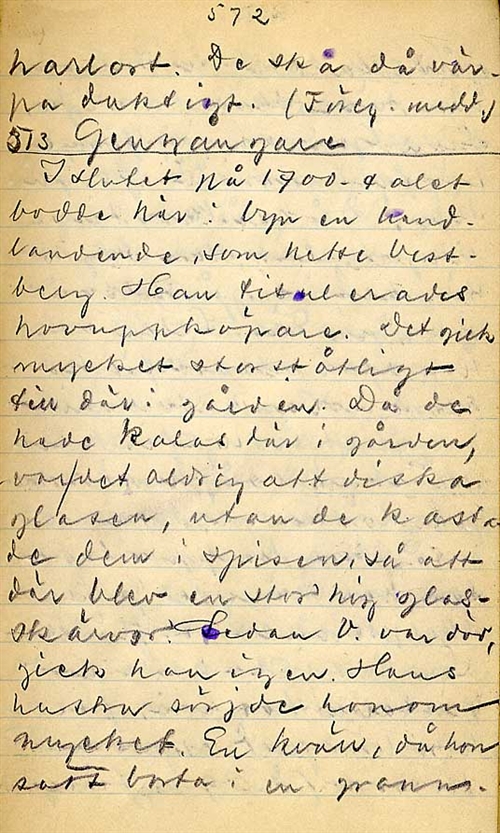 572
harlort. De ska då vär-
pa duktigt. (Föreg. medd.)
573 Gengångare
I slutet på 1700-talet
bodde här i byn en hand-
landende, som hette Vest-
berg. Han titulerades
hovuppköpare. Det gick
mycket storståtligt
till där i gården. Då de
hade kalas där i gården,
var det aldrig att diska
glasen, utan de kasta-
de dem i spisen, så att
där blev en stor hög glas-
skärvor. Sedan V. var död,
gick han igen. Hans
hustru sörjde honom
mycket. En kväll, då hon
satt borta i en grann-